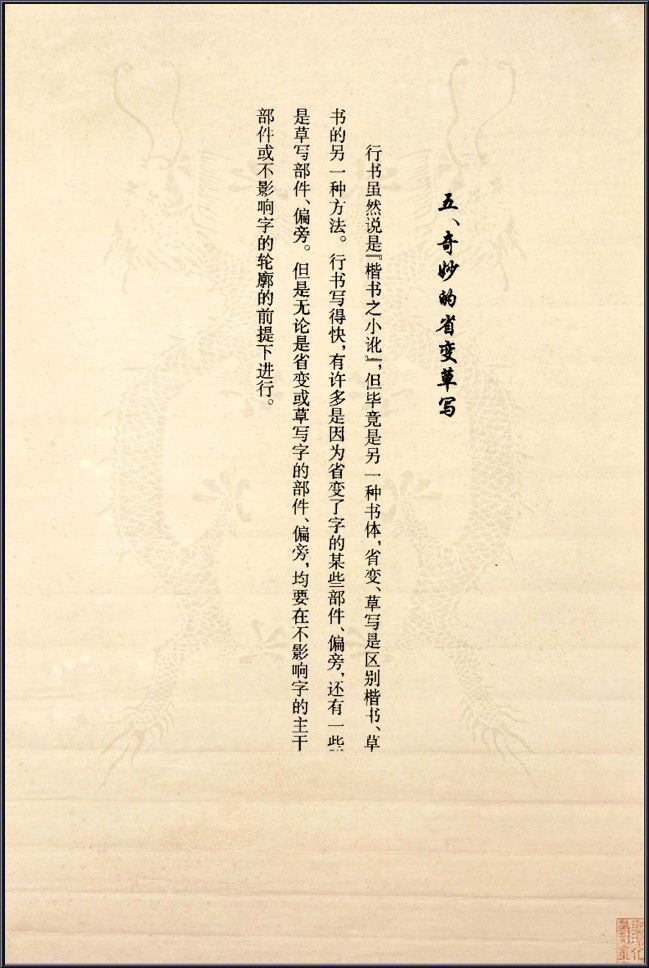 五、奇妙的省变草写
行书虽然说是『楷书之小讹』，但毕竟是另一种书体，省变、草写是区别楷书、草
书的另一种方法。行书写得快，有许多是因为省变了字的某些部件、偏旁，还有一些
是草写部件、偏旁。但是无论是省变或草写字的部件、偏旁，均要在不影响字的主干
部件或不影响字的轮廓的前提下进行。